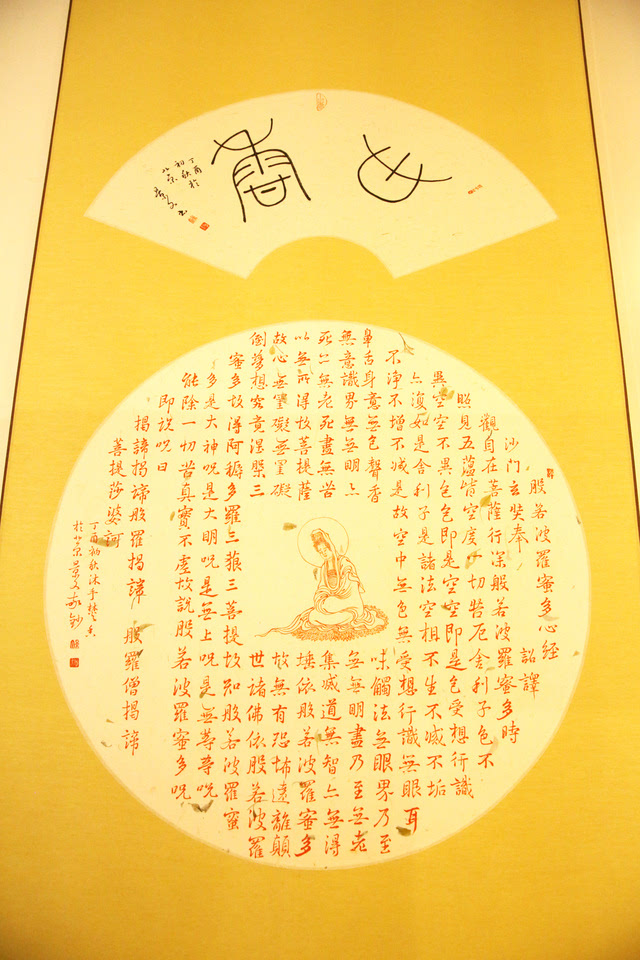 心香
丁酉於
初秋
北京
般若波羅蜜多心經
沙门玄奘奉 詔譯
觀自在菩薩行深般若波羅蜜多時
照見五蘊皆空度一切苦厄舍利子色不
異空空不異色色即是空空即是色受想行識
亦復如是舍利子是諸法空相不生不滅不垢
不淨不增不減是故空中無色無受想行識無眼耳
鼻舌身意無色聲香 味觸法無眼界乃至
無意識界無無明亦 無無明盡乃至無老
死亦無老死盡無苦 集滅道無智亦無得
以無所得故菩提薩 埵依般若波羅蜜多
故心無罣礙無罣礙 故無有恐怖遠離顛
倒夢想究竟涅槃三 世諸佛依般若波羅
蜜多故得阿耨多羅三藐三菩提故知般若波羅蜜
多是大神呪是大明呪是無上呪是無等等呪
能除一切苦真實不虛故說般若波羅蜜多呪
即說呪曰
揭諦揭諦般羅揭諦 般羅僧揭諦
菩提莎婆訶
丁酉初秋沐手焚香
於北京景文敬鈔